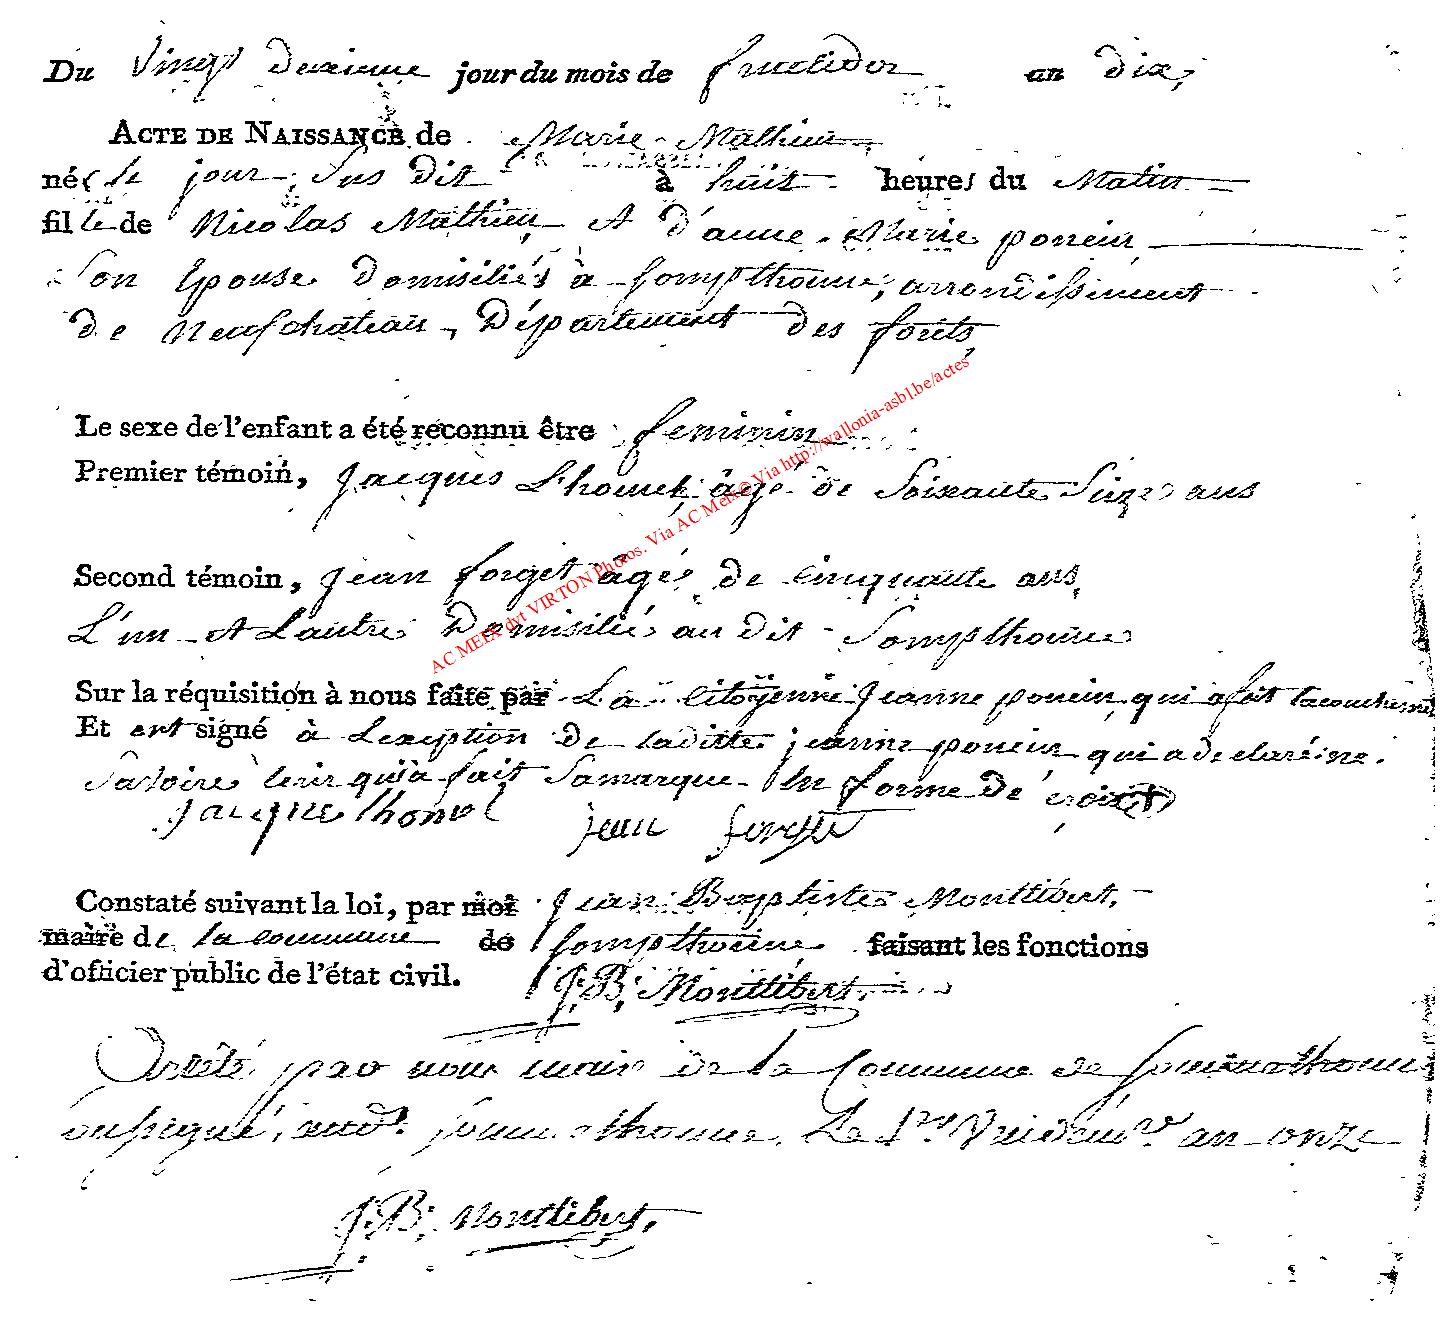 Du vingt deuxieme jour du mois de fructidor an dix,
ACTE DE NAISSANCE de Marie Mathieu
née le jour Sus dit à huit heures du Matin
fille de Nicolas Mathieu Et d'anne Marie poncin
Son Epouse Domisiliés à Sompthonne, arrondissement
de Neufchateau, Département des forêts
Le sexe de l'enfant a été reconnu être feminin
Premier témoin, Jacques L'homel, âgé de Soixante Sieze ans
Second témoin, Jean forget âgé de cinquante ans,
L'un Et Lautre Domisilié au dit Sompthonne
Sur la réquisition à nous faite par La citoÿenne Jeanne poncin, qui a fait
Et ont signé à Lexeption de laditte jeanne poncin qui a declaré ne
Savoire qu'a fait Samarque En forme de croix
jacque lhomel jean forget
Constaté suivant la loi, par moi Jean Baptiste Montlibert,
maire de la commune de Sompthonne faisant les fonctions
d'officier public de l'état civil. J: B: Montlibert
Arrêté par nous maire de la Commune de Sommethonne
Sommethonne. Le 1er Vendémre an onze
J: B: Montlibert,
AC MEIX dvt VIRTON Photos. Via AC Meix© Via http://wallonia-asbl.be/actes